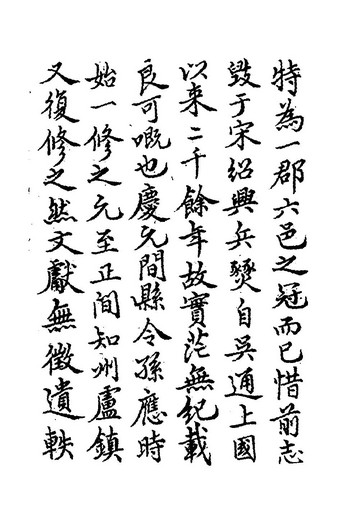 特為一郡六邑之冠而已惜前志
毀于宋紹興兵燹自吳通上國
以来二千餘年故實茫無紀載
良可嘅也慶元間縣令孫應時
始一修之元至正間知州盧鎮
又復修之然文獻無徵遺軼